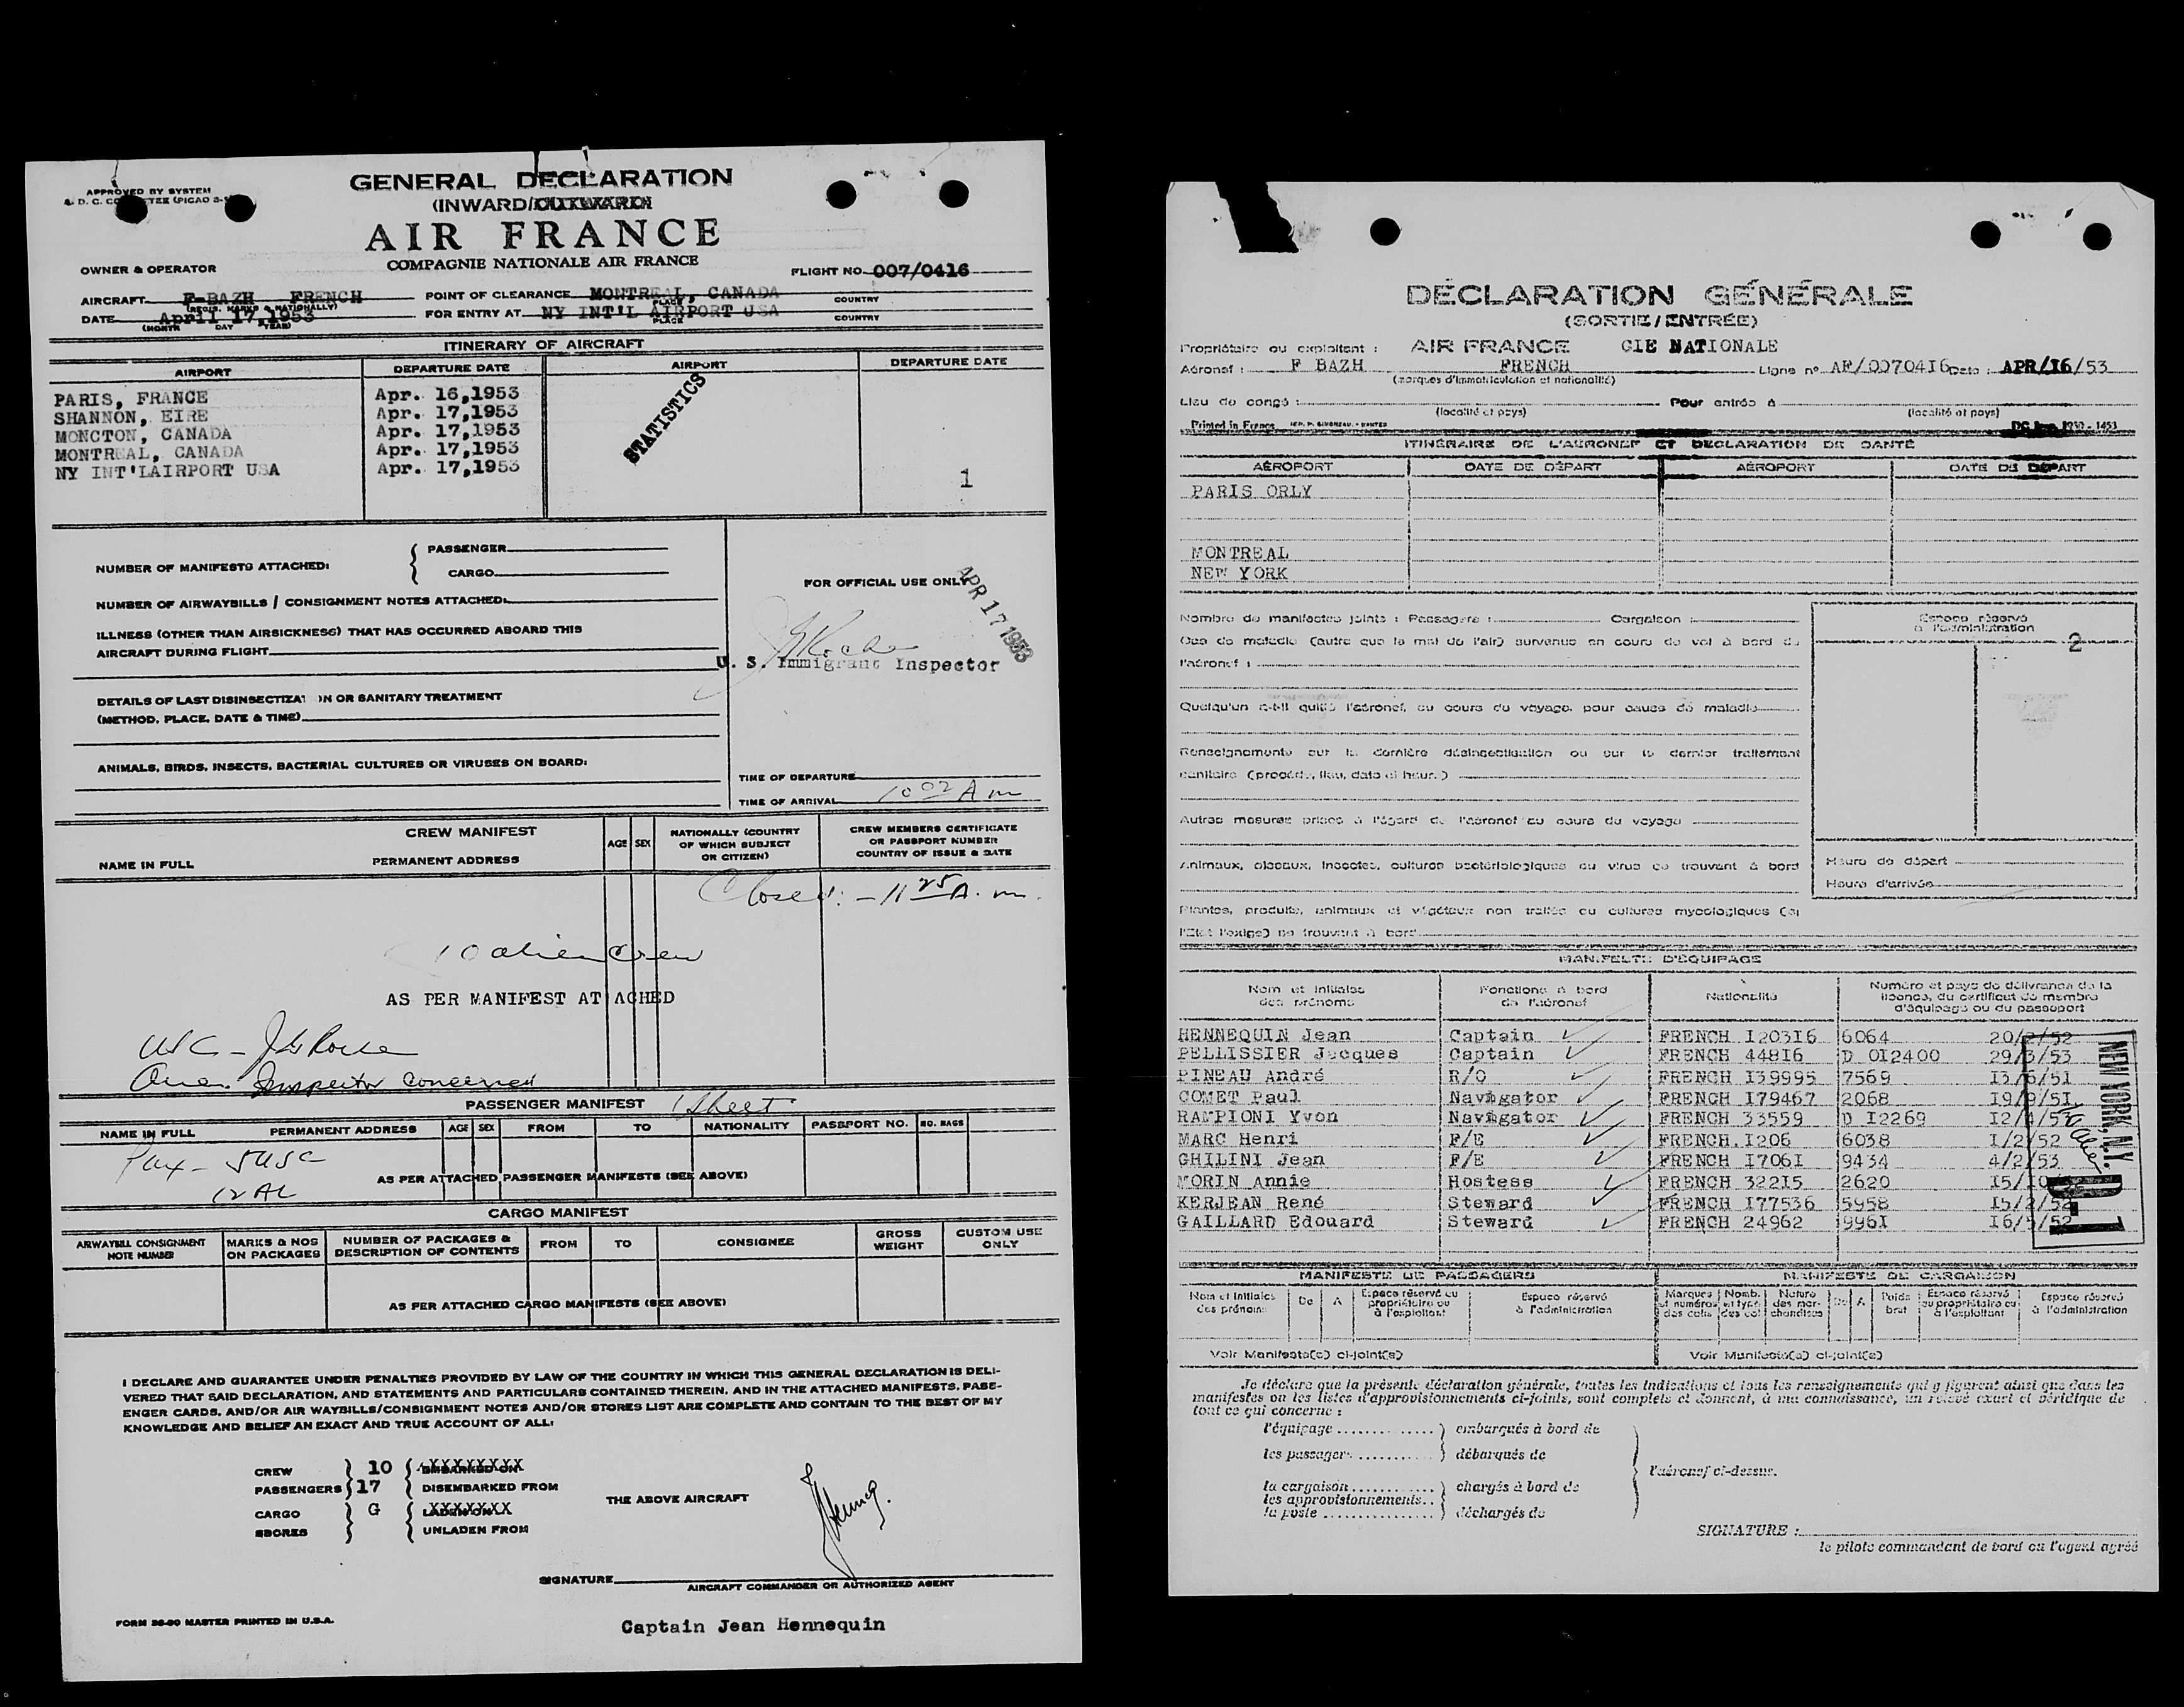 APPROVED BY SYSTEM
GENERAL DECLARATION
(INWARD/OUTWARD)
AIR FRANCE
COMPAGNIE NATIONALE AIR FRANCE
OWNER & OPERATOR
FLIGHT NO. 007/0416
AIRCRAFT F-BAZH FRENCH POINT OF CLEARANCE MONTREAL, CANADA
(REGIS. MARKS & NATIONALLY) PLACE COUNTRY
DATE April 17,1953 FOR ENTRY AT NY INT'L AIRPORT USA
(MONTH DAY YEAR) PLACE COUNTRY
ITINERARY OF AIRCRAFT
AIRPORT DEPARTURE DATE AIRPORT DEPARTURE DATE
PARIS, FRANCE Apr. 16,1953
SHANNON, EIRE Apr. 17,1953
MONCTON, CANADA Apr. 17,1953
MONTREAL, CANADA Apr. 17,1953
NY INT'LAIRPORT USA Apr. 17,1953
STATISTICS
1
NUMBER OF MANIFESTS ATTACHED: { PASSENGER
CARGO
NUMBER OF AIRWAYBILLS / CONSIGNMENT NOTES ATTACHED:
ILLNESS (OTHER THAN AIRSICKNESS) THAT HAS OCCURRED ABOARD THIS
AIRCRAFT DURING FLIGHT
DETAILS OF LAST DISINSECTIZAT ON OR SANITARY TREATMENT
(METHOD, PLACE, DATE & TIME)
ANIMALS, BIRDS, INSECTS, BACTERIAL CULTURES OR VIRUSES ON BOARD:
FOR OFFICIAL USE ONLY
APR 17 1953
U. S. Immigrant Inspector
TIME OF DEPARTURE
TIME OF ARRIVAL 10 02 A m
CREW MANIFEST
NAME IN FULL PERMANENT ADDRESS AGE SEX NATIONALLY (COUNTRY OF WHICH SUBJECT OR CITIZEN) CREW MEMBERS CERTIFICATE OR PASSPORT NUMBER COUNTRY OF ISSUE & DATE
Closed: - 11 25 A. m.
10 alien crew
AS PER MANIFEST ATTACHED
Inspector concerned
PASSENGER MANIFEST 1 Sheet
NAME IN FULL PERMANENT ADDRESS AGE SEX FROM TO NATIONALITY PASSPORT NO. NO. BAGS
Pax - 5 USC
12 AL
AS PER ATTACHED PASSENGER MANIFESTS (SEE ABOVE)
CARGO MANIFEST
AIRWAYBILL CONSIGNMENT NOTE NUMBER MARKS & NOS ON PACKAGES NUMBER OF PACKAGES & DESCRIPTION OF CONTENTS FROM TO CONSIGNEE GROSS WEIGHT CUSTOM USE ONLY
AS PER ATTACHED CARGO MANIFESTS (SEE ABOVE)
I DECLARE AND GUARANTEE UNDER PENALTIES PROVIDED BY LAW OF THE COUNTRY IN WHICH THIS GENERAL DECLARATION IS DELI-
VERED THAT SAID DECLARATION, AND STATEMENTS AND PARTICULARS CONTAINED THEREIN, AND IN THE ATTACHED MANIFESTS, PASS-
ENGER CARDS, AND/OR AIR WAYBILLS/CONSIGNMENT NOTES AND/OR STORES LIST ARE COMPLETE AND CONTAIN TO THE BEST OF MY
KNOWLEDGE AND BELIEF AN EXACT AND TRUE ACCOUNT OF ALL:
CREW } 10 { EMBARKED ON
PASSENGERS } 17 DISEMBARKED FROM
THE ABOVE AIRCRAFT
CARGO } G { LADEN ON
STORES } UNLADEN FROM
SIGNATURE
AIRCRAFT COMMANDER OR AUTHORIZED AGENT
FORM 26-90 MASTER PRINTED IN U.S.A.
Captain Jean Hennequin
DÉCLARATION GÉNÉRALE
(SORTIE/ENTRÉE)
Propriétaire ou exploitant : AIR FRANCE CIE NATIONALE
Aéronef : F BAZH FRENCH Ligne n° AF/0070416 Date : APR/16/53
(marques d'immatriculation et nationalité)
Lieu de congé : Pour entrée à
(localité et pays) (localité et pays)
Printed in France
ITINÉRAIRE DE L'AÉRONEF ET DÉCLARATION DE SANTÉ
AÉROPORT DATE DE DÉPART AÉROPORT DATE DE DÉPART
PARIS ORLY
MONTREAL
NEW YORK
Nombre de manifestes joints : Passagers : Cargaison :
Cas de maladie (autre que le mal de l'air) survenus en cours de vol à bord de
l'aéronef :
Quelqu'un a-t-il quitté l'aéronef, au cours du voyage, pour cause de maladie
Renseignements sur la dernière désinsectisation ou sur le dernier traitement
sanitaire (procédé, lieu, date et heure)
Autres mesures prises à l'égard de l'aéronef au cours du voyage
Animaux, oiseaux, insectes, cultures bactériologiques ou virus se trouvant à bord
Plantes, produits, animaux et végétaux non traités ou cultures mycologiques (si
l'Etat l'exige) se trouvant à bord
Espace réservé à l'administration
2
Heure de départ
Heure d'arrivée
MANIFESTE D'ÉQUIPAGE
Nom et initiales des prénoms Fonctions à bord de l'aéronef Nationalité Numéro et pays de délivrance de la licence, du certificat de membre d'équipage ou du passeport
HENNEQUIN Jean Captain FRENCH I20316 6064 20/2/52
PELLISSIER Jacques Captain FRENCH 44816 D 012400 29/3/53
PINEAU André R/O FRENCH I39995 7569 I3/6/51
COMET Paul Navigator FRENCH I79467 2068 I9/9/51
RAMPIONI Yvon Navigator FRENCH 33559 D I2269 I2/4/5
MARC Henri F/E FRENCH I206 6038 I/2/52
GHILINI Jean F/E FRENCH I706I 9434 4/2/53
MORIN Annie Hostess FRENCH 32215 2620 I5/10
KERJEAN René Steward FRENCH I77536 5958 I5/2/52
GAILLARD Edouard Steward FRENCH 24962 996I I6/5/52
NEW YORK, N.Y. D-1
MANIFESTE DE PASSAGERS MANIFESTE DE CARGAISON
Nom et initiales des prénoms De A Espace réservé au propriétaire ou à l'exploitant Espace réservé à l'administration Marques et numéros des colis Nomb. et type des col Nature des marchandises De A Poids brut Espace réservé au propriétaire ou à l'exploitant Espace réservé à l'administration
Voir Manifeste(s) ci-joint(s) Voir Manifeste(s) ci-joint(s)
Je déclare que la présente déclaration générale, toutes les indications et tous les renseignements qui y figurent ainsi que dans les
manifestes ou les listes d'approvisionnements ci-joints, sont complets et donnent, à ma connaissance, un relevé exact et véridique de
tout ce qui concerne :
l'équipage } embarqués à bord de
les passagers } débarqués de
l'aéronef ci-dessus.
la cargaison } chargés à bord de
les approvisionnements
la poste } déchargés de
SIGNATURE :
le pilote commandant de bord ou l'agent agréé